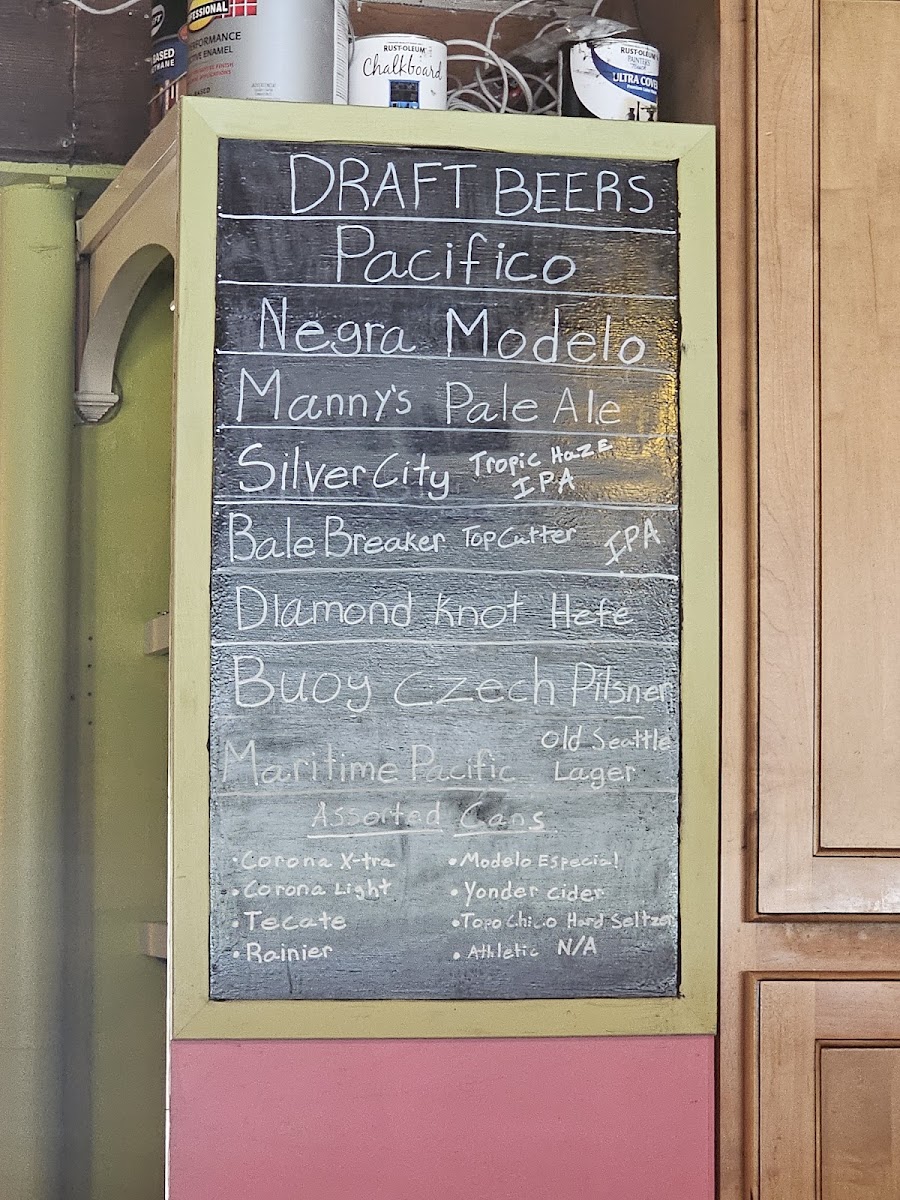 BASED
PROFESSIONAL
PERFORMANCE
ENAMEL
BASED
RUST-OLEUM
Chalkboard
RUST-OLEUM
PAINTER'S
Touch
ULTRA COVER
DRAFT BEERS
Pacifico
Negra Modelo
Manny's Pale Ale
Silver City Tropic Haze
IPA
Bale Breaker Top Cutter IPA
Diamond Knot Hefe
Buoy Czech Pilsner
Maritime Pacific Old Seattle
Lager
Assorted Cans
• Corona X-tra
• Corona Light
• Tecate
• Rainier
• Modelo Especial
• Yonder Cider
• Topo Chico Hard Seltzer
• Athletic N/A